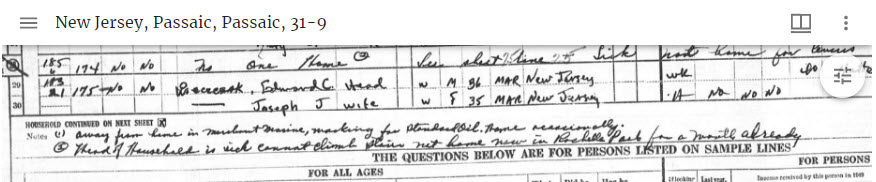 New Jersey, Passaic, Passaic, 31-9
185 174 No No No One Home See sheet line 25 Sick not home for
29 183 21 175 No No Edward C. Head W M 36 MAR New Jersey WK
30 Joseph J Wife W F 35 MAR New Jersey H No No No
HOUSEHOLD CONTINUED ON NEXT SHEET
Notes (1) away from home in merchant Marine, working for Standard Oil. Home occasionally.
② Head of Household is sick cannot climb stairs not home now in Rochelle Park for a month already
THE QUESTIONS BELOW ARE FOR PERSONS LISTED ON SAMPLE LINES
FOR ALL AGES
FOR PERSONS
If looking Last year, Income received by this person in 1949